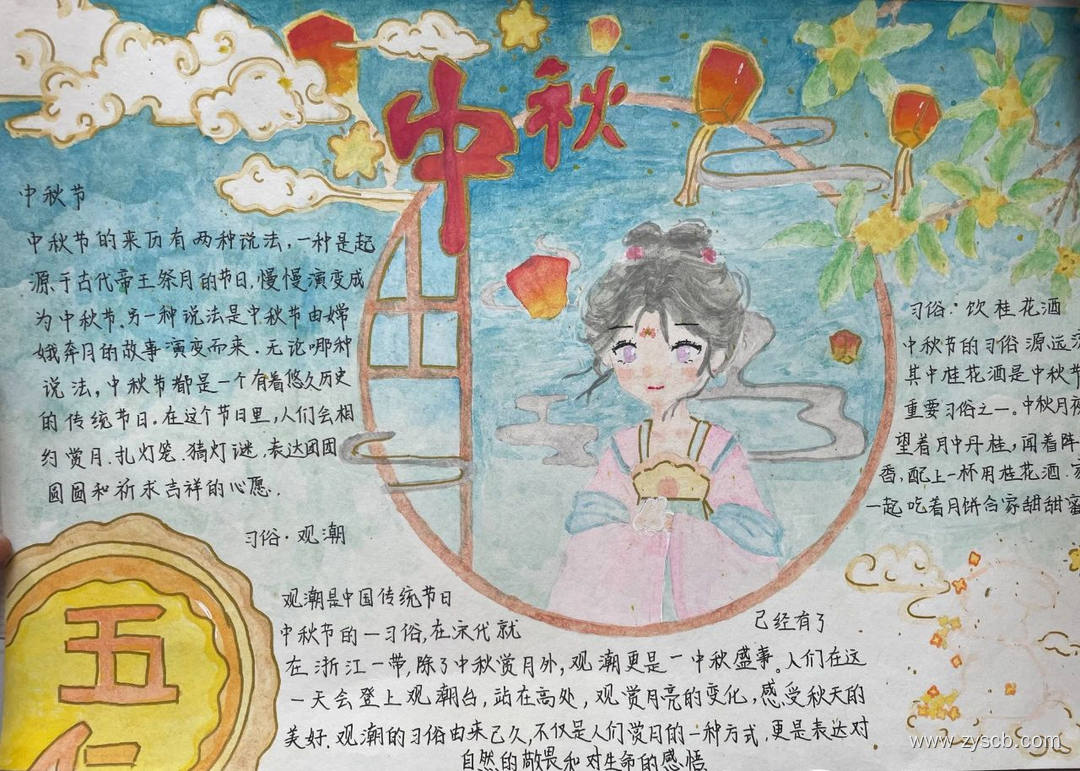 中秋
中秋节
中秋节的来历有两种说法,一种是起
源于古代帝王祭月的节日,慢慢演变成
为中秋节.另一种说法是中秋节由嫦
娥奔月的故事演变而来.无论哪种
说法,中秋节都是一个有着悠久历史
的传统节日.在这个节日里,人们会相
约赏月.扎灯笼.猜灯谜,表达团团
圆圆和祈求吉祥的心愿.
习俗:饮桂花酒
中秋节的习俗源远
其中桂花酒是中秋节
重要习俗之一。中秋月夜
望着月中丹桂,闻着阵
香,配上一杯用桂花酒.
一起吃着月饼合家甜甜蜜
五
习俗·观潮
观潮是中国传统节日
中秋节的一习俗,在宋代就 已经有了
在浙江一带,除了中秋赏月外,观潮更是一中秋盛事。人们在这
一天会登上观潮台,站在高处,观赏月亮的变化,感受秋天的
美好.观潮的习俗由来已久,不仅是人们赏月的一种方式,更是表达对
自然的敬畏和对生命的感悟
www.zyscb.com